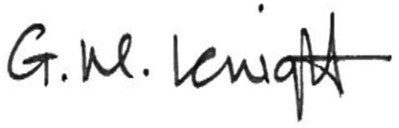 G.M. Knight